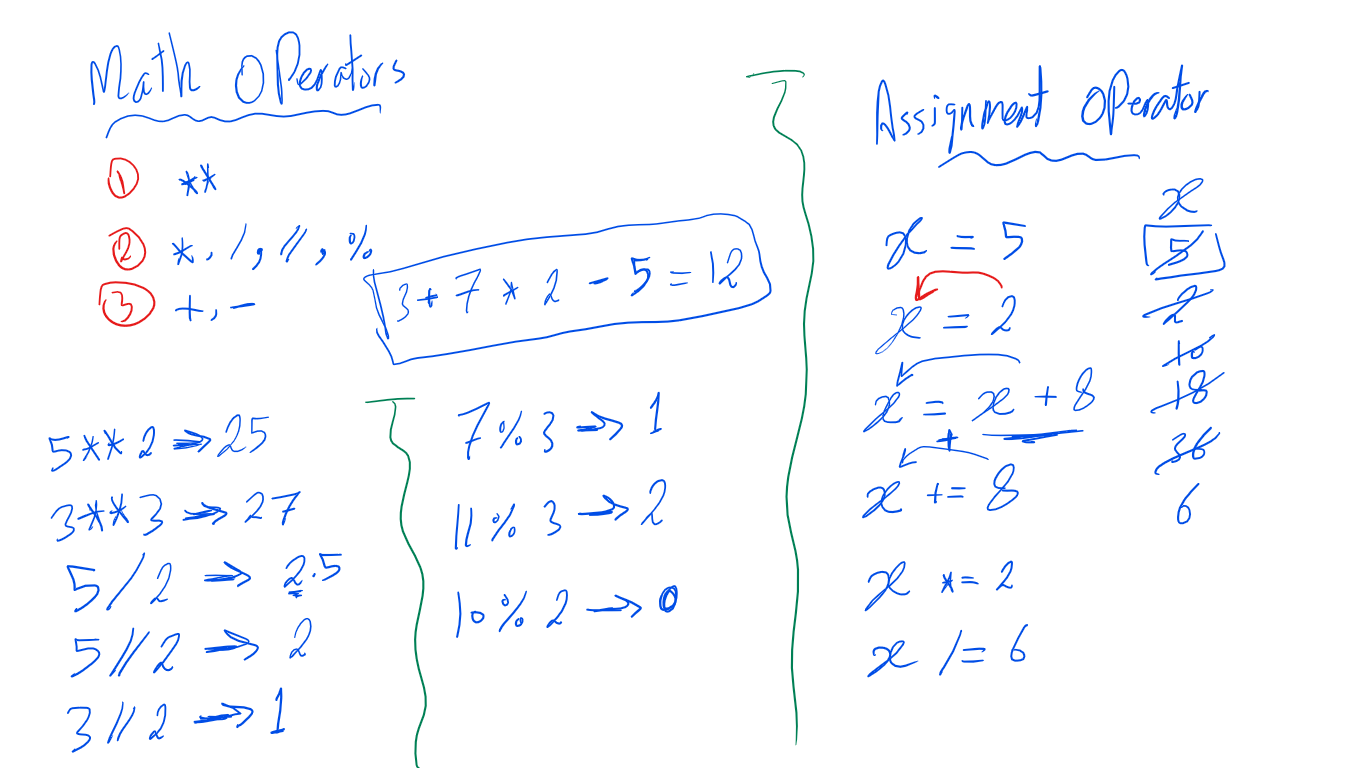 Math Operators
① **
② *, /, //, %
③ +, -
3 + 7 * 2 - 5 = 12
5**2 ⇒ 25
3**3 ⇒ 27
5/2 ⇒ 2.5
5//2 ⇒ 2
3//2 → 1
7%3 → 1
11%3 → 2
10%2 → 0
Assignment Operator
x = 5
x = 2
x = x + 8
+
x += 8
x *= 2
x /= 6
x
5
2
10
18
36
6